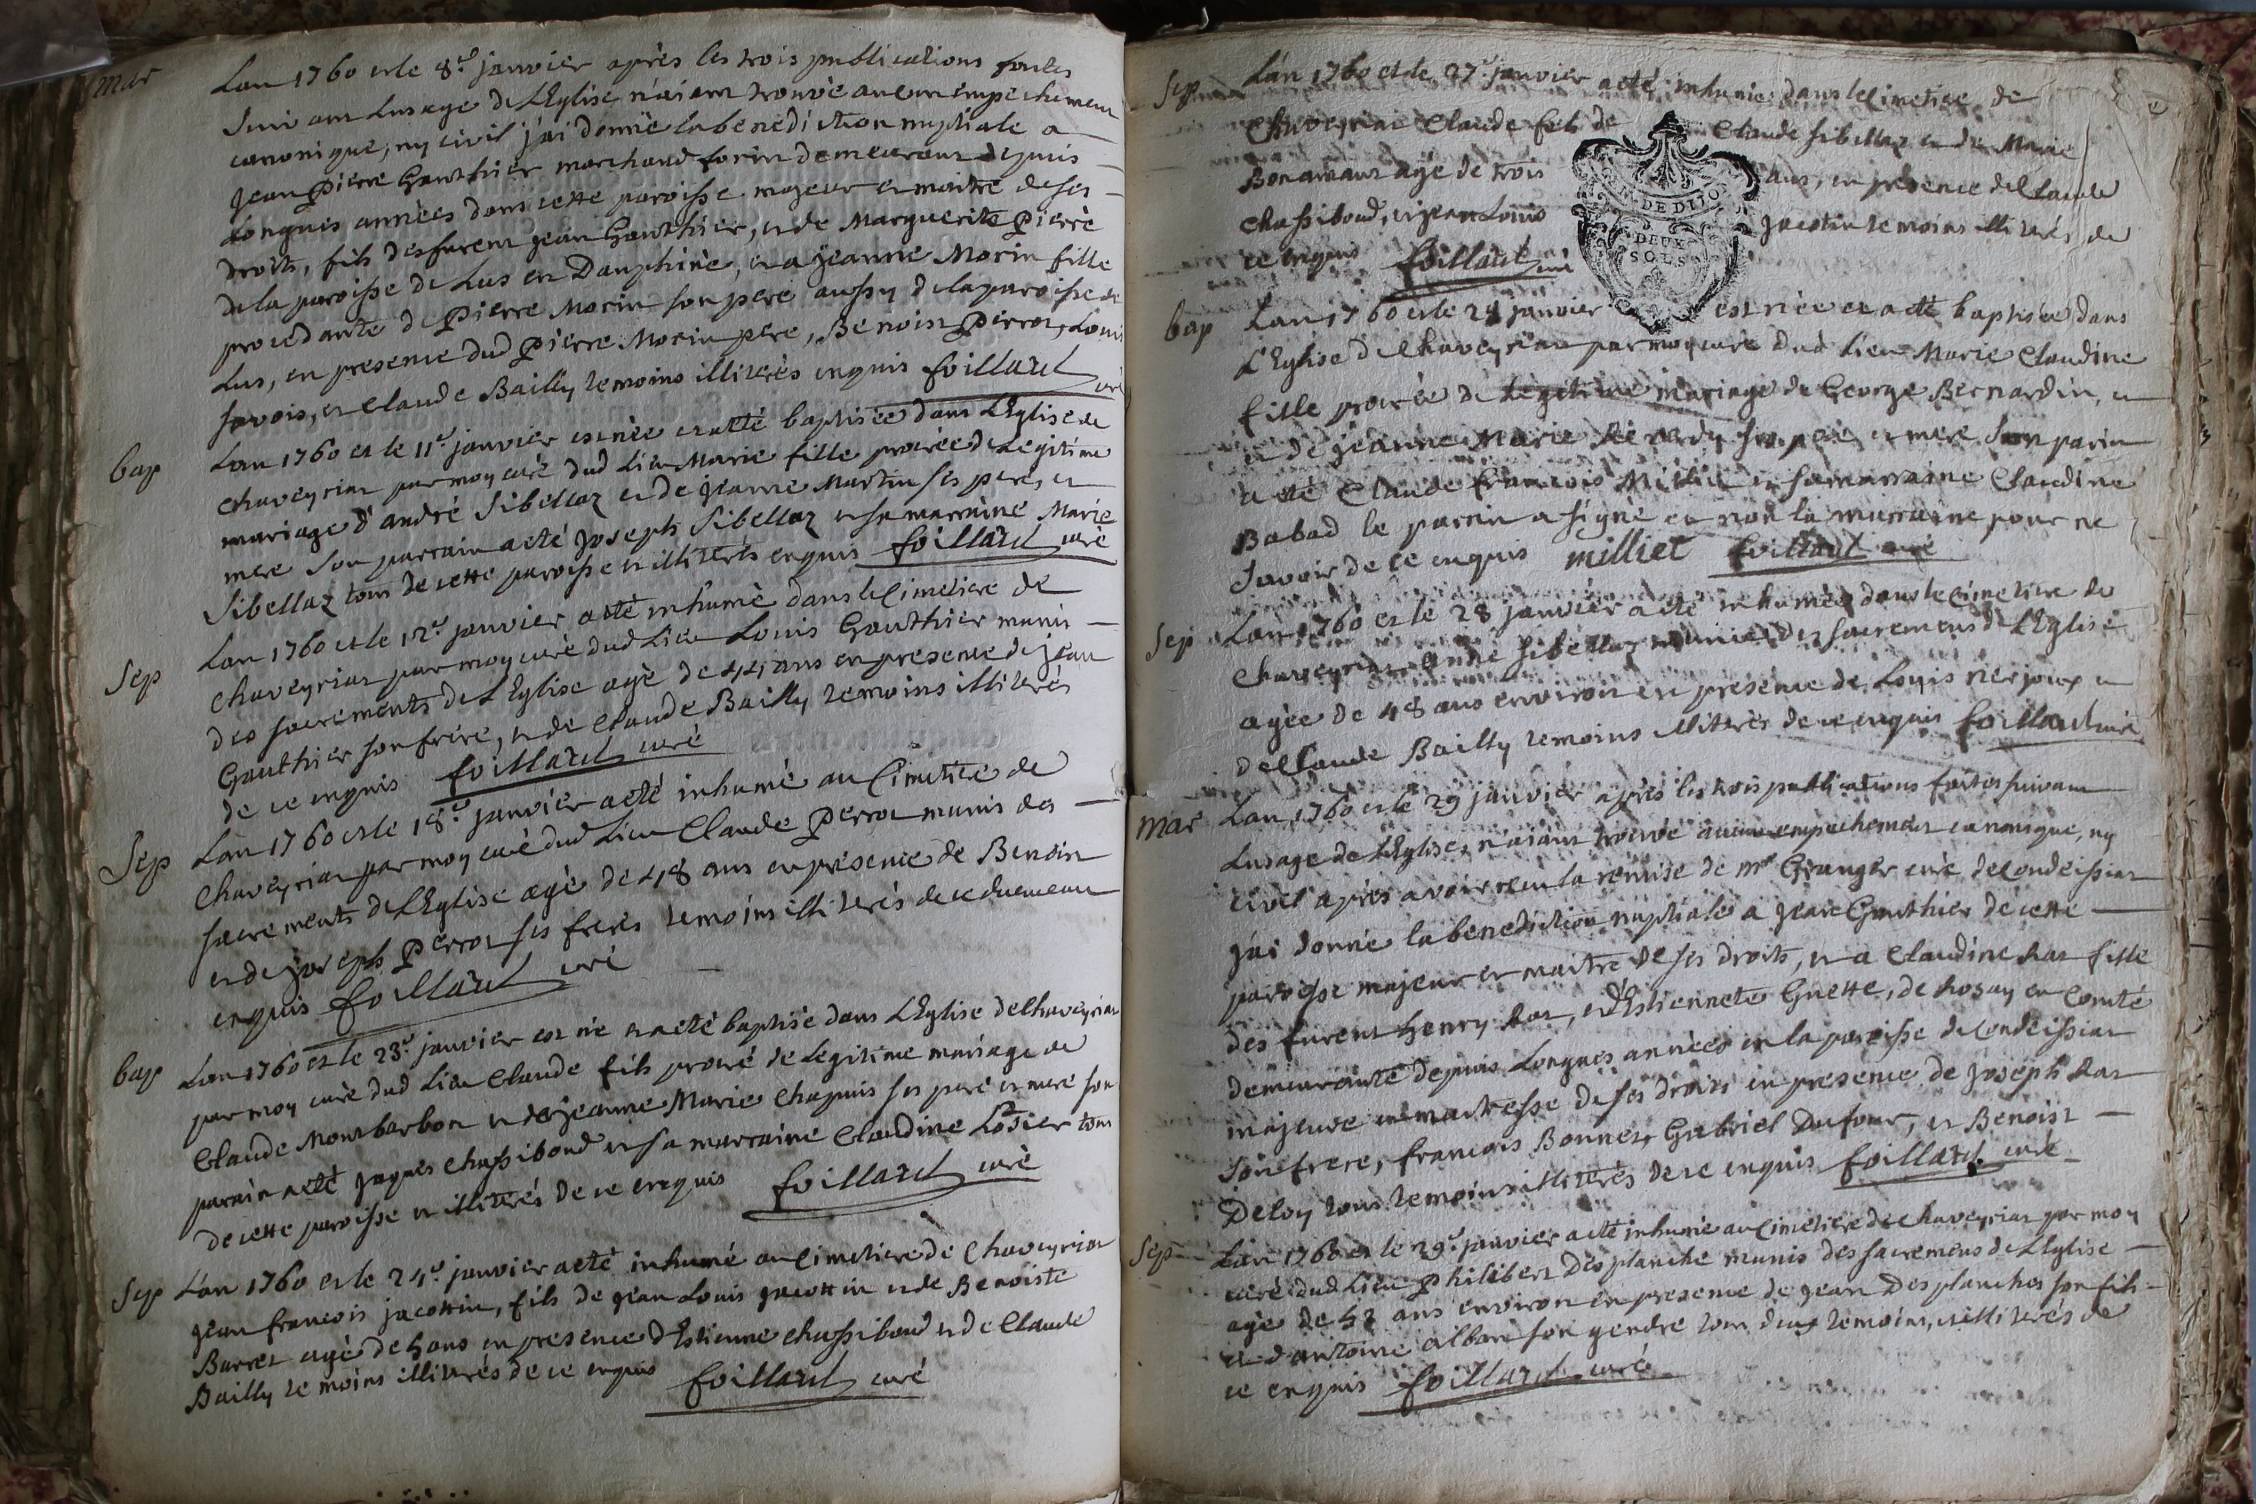 mar
Lan 1760 et le 8.e janvier après les trois publications faites
suivant Lusage de LEglise, n'aiant trouvé aucun empechement
canonique, ny civil j'ai donnée la benediction nuptiale a
jean Pierre Gauthier marchand forin demeurant depuis
longues années dans cette paroisse majeur et maitre de ses
droits, fils desfurent jean Gauthier, et de Marguerite Pierre
de la paroisse de Lus en Dauphiné, et a jeanne Morin fille
procedante de Pierre Morin son pere aussy de la paroisse de
Lus, en presence dud Pierre Morin pere, Benoist Perrot, Louis
savois, et Claude Bailly temoins illiterés enquis foillard curé
bap
Lan 1760 et le 11.e janvier est née et a eté baptisée dans LEglise de
chaveyriat par moy curé dud Lieu Marie fille procréée de Legitime
mariage d'andré Sibellaz et de jeanne Martin ses pere, et
mere son parrain a eté joseph Sibellaz et sa marraine Marie
Sibellaz tous de cette paroisse et illiterés enquis foillard curé
Sep
Lan 1760 et le 12.e janvier a eté inhumé dans le Cimetiere de
chaveyriat par moy curé dud Lieu Louis Gauthier munis
des sacrements de LEglise agé de 44 ans en presence de jean
Gauthier son frere, et de Claude Bailly temoins illiterés
de ce enquis foillard curé
Sep
Lan 1760 et le 18.e janvier a eté inhumé au Cimetiere de
Chaveyriat par moy curé dud Lieu Claude Perrot munis des
sacrements de LEglise agé de 48 ans en presence de Benoist
et de joseph Perrot ses freres temoins illiterés de ce duement
enquis foillard curé
bap
Lan 1760 et le 23.e janvier est né et a eté baptisé dans LEglise de Chaveyriat
par moy curé dud Lieu Claude fils procréé de Legitime mariage de
Claude Montbarbon et de jeanne Marie Chapuis ses pere et mere son
parain a eté jaques Chassiboud et sa marraine Claudine tous
de cette paroisse et illiterés de ce enquis foillard curé
Sep
Lan 1760 et le 24.e janvier a eté inhumé au Cimetiere de Chaveyriat
jean francois jacottin, fils de jean Louis jacottin et de Benoiste
Barret agé de 5 ans en presence d'Estienne chassiboud et de Claude
Bailly temoins illiterés de ce enquis foillard curé
Sep
Lan 1760 et le 27.e janvier a eté inhumé dans le Cimetiere de
Chaveyriat Claude fils de Claude Sibellaz et de Marie
Bonamant agé de trois ans, en presence de Claude
chassiboud, et jean Louis jacottin temoins illiterés de
ce enquis foillard curé
DE DIJO
DEUX
SOLS
bap
Lan 1760 et le 28 janvier est née et a eté baptisée dans
LEglise de Chaveyriat par moy curé dud Lieu Marie Claudine
fille procréée de Legitime mariage de George Bernardin, et
et de jeanne Marie pere et mere son parin
a eté Claude francois Milliet et sa marraine Claudine
Babad le parrin a signé et non la marraine pour ne
savoir de ce enquis milliet foillard curé
Sep
Lan 1760 et le 28 janvier a eté inhumée dans le Cimetiere de
Chaveyriat Sibellaz munie des sacremens de LEglise
agée de 48 ans environ en presence de Louis et
de Claude Bailly temoins illitterés de ce enquis foillard curé
mar
Lan 1760 et le 29 janvier après les trois publications faites suivant
Lusage de LEglise, n'aiant trouvé aucun empechement canonique, ny
civil après avoir receu la remise de mr Granger curé de Condeissiat
j'ai donné la benediction nuptiale a jean Gauthier de cette
paroisse majeur et maitre de ses droits, et a Claudine Rat fille
des furent henry Rat, et d'Estiennette Guette, de Rosay en Comté
demeurante depuis Longues années en la paroisse de Condeissiat
majeure et maitresse de ses droits en presence de joseph Rat
son frere, francois Bonnet, Gabriel Dufour, et Benoist
Deloy tous temoins illiterés de ce enquis foillard curé
Sep
Lan 1760 et le 29.e janvier a eté inhumé au Cimetiere de Chaveyriat par moy
curé dud Lieu Philibert Desplanche munis des sacremens de LEglise
agé de ans environ en presence de jean Desplanches son fils
et d'antoine alban son gendre tous deux temoins, et illiterés de
ce enquis foillard curé